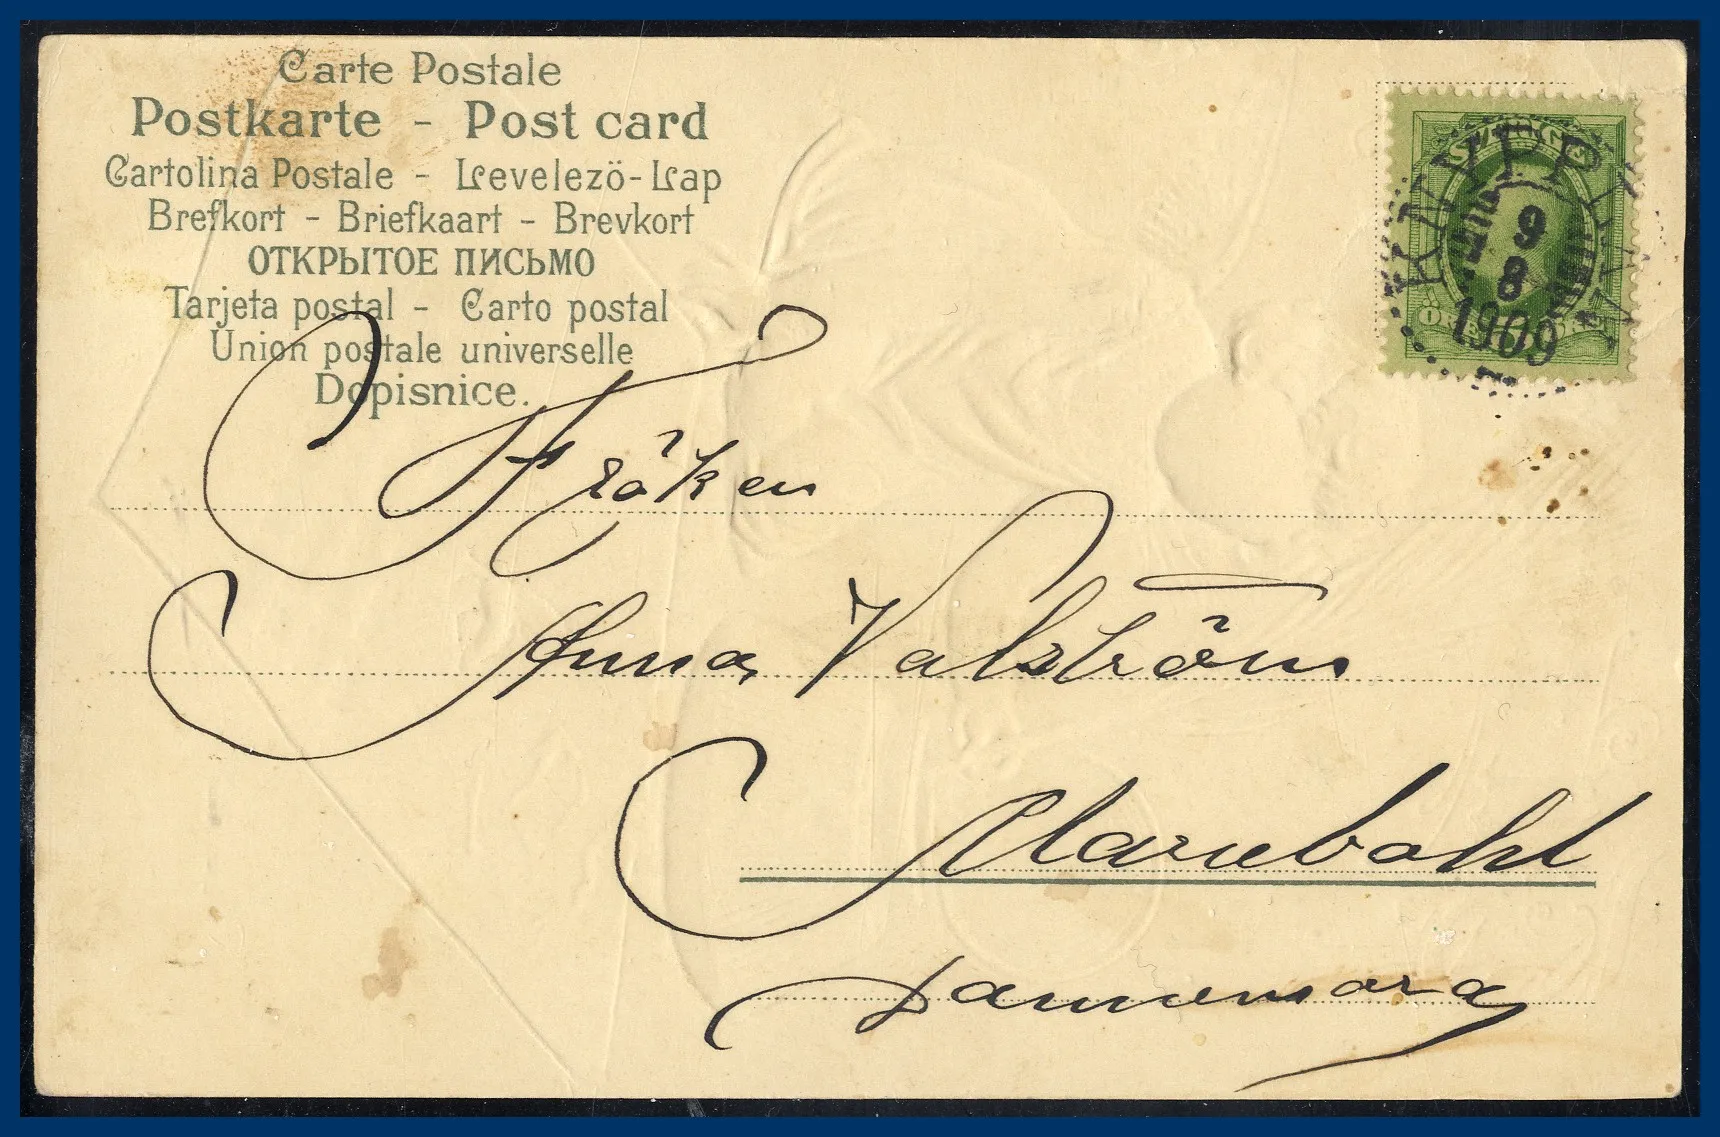 Carte Postale
Postkarte - Post card
Cartolina Postale - Levelezö-Lap
Brefkort - Briefkaart - Brevkort
ОТКРЫТОЕ ПИСЬМО
Tarjeta postal - Carto postal
Union postale universelle
Dopisnice.
SVERIGE
KNYPPLAN
9
8
1909
Fröken
Anna Valström
Dannemora